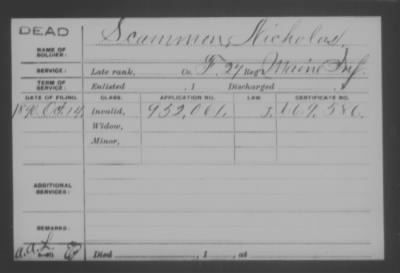 DEAD
NAME OF SOLDIER: Scammon, Nicholas,
SERVICE: Late rank, Co. F, 27 Reg't Maine Inf.
TERM OF SERVICE: Enlisted , 1 Discharged , 1
DATE OF FILING. CLASS. APPLICATION NO. LAW. CERTIFICATE NO.
1890 Oct. 14. Invalid, 952,061
Widow,
Minor,
ADDITIONAL SERVICES:
REMARKS:
Died , 1 , at